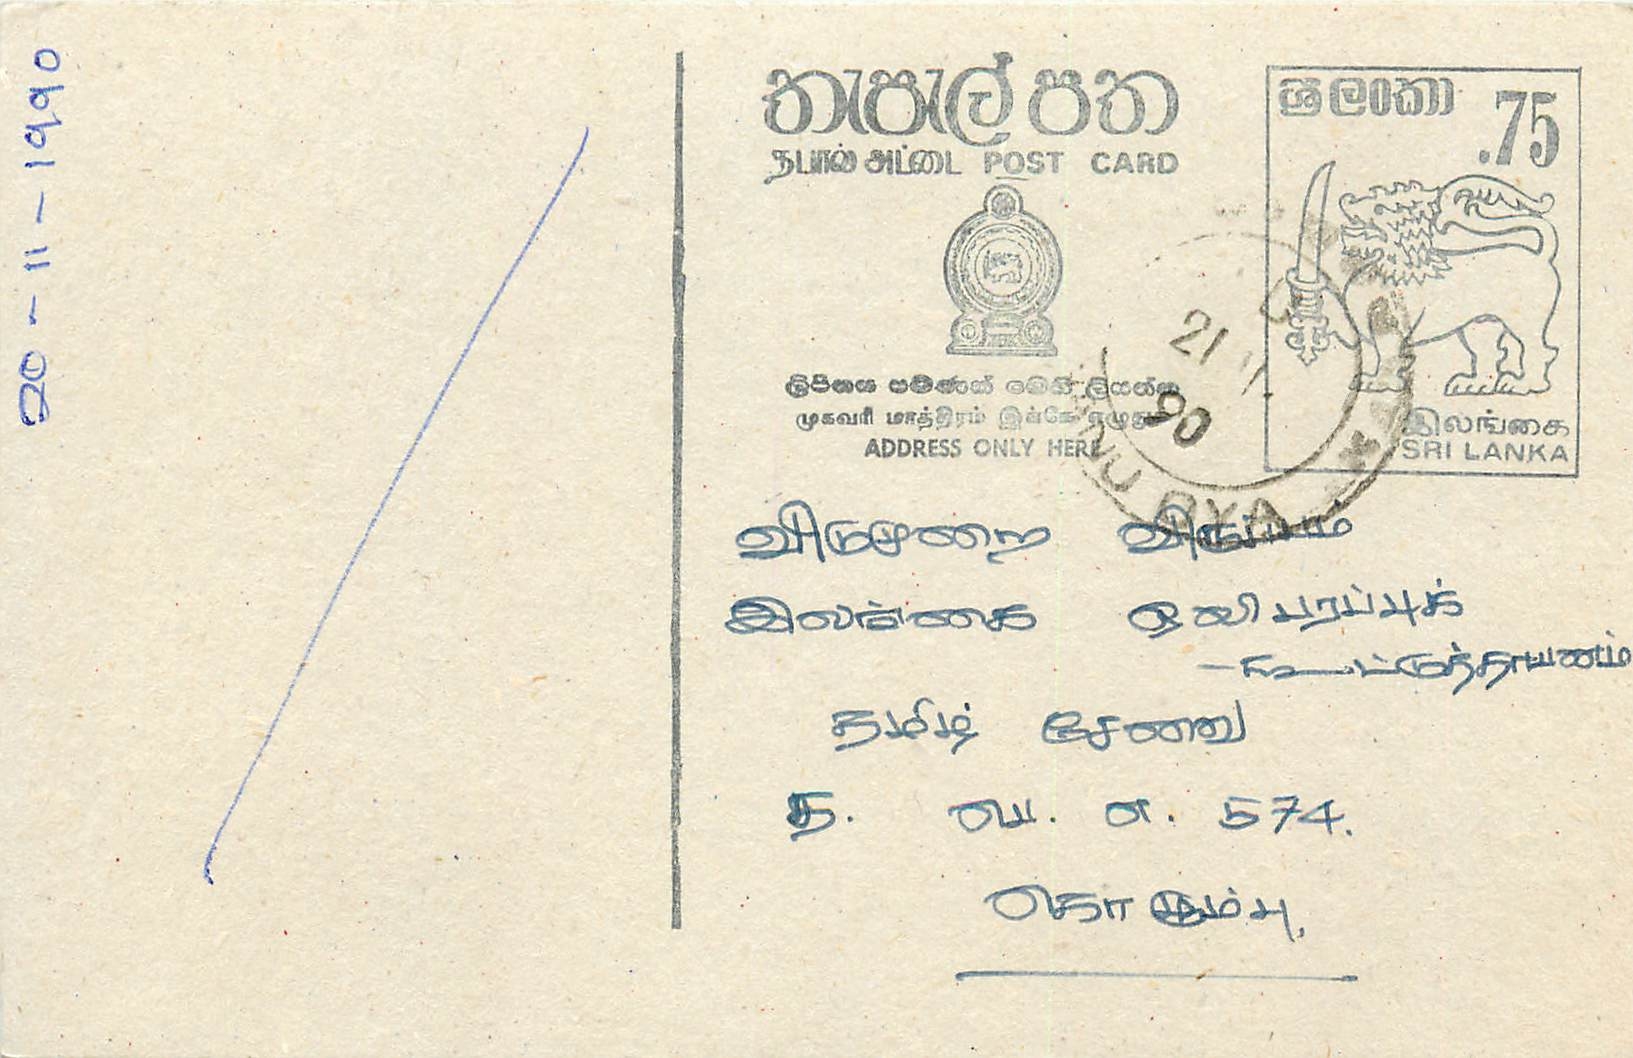 20-11-1990
තැපැල් පත
தபால் அட்டை POST CARD
ශ්‍රී ලංකා
.75
ලිපිනය පමණක් මෙහි ලියන්න
முகவரி மாத்திரம் இங்கே எழுதுக
ADDRESS ONLY HERE
இலங்கை
SRI LANKA
21 11
90
விடுமுறை விருப்பம்
இலங்கை ஒலிபரப்புக்
-கூட்டுத்தாபனம்
தமிழ் சேவை
த. பெ. எ. 574.
கொழும்பு.